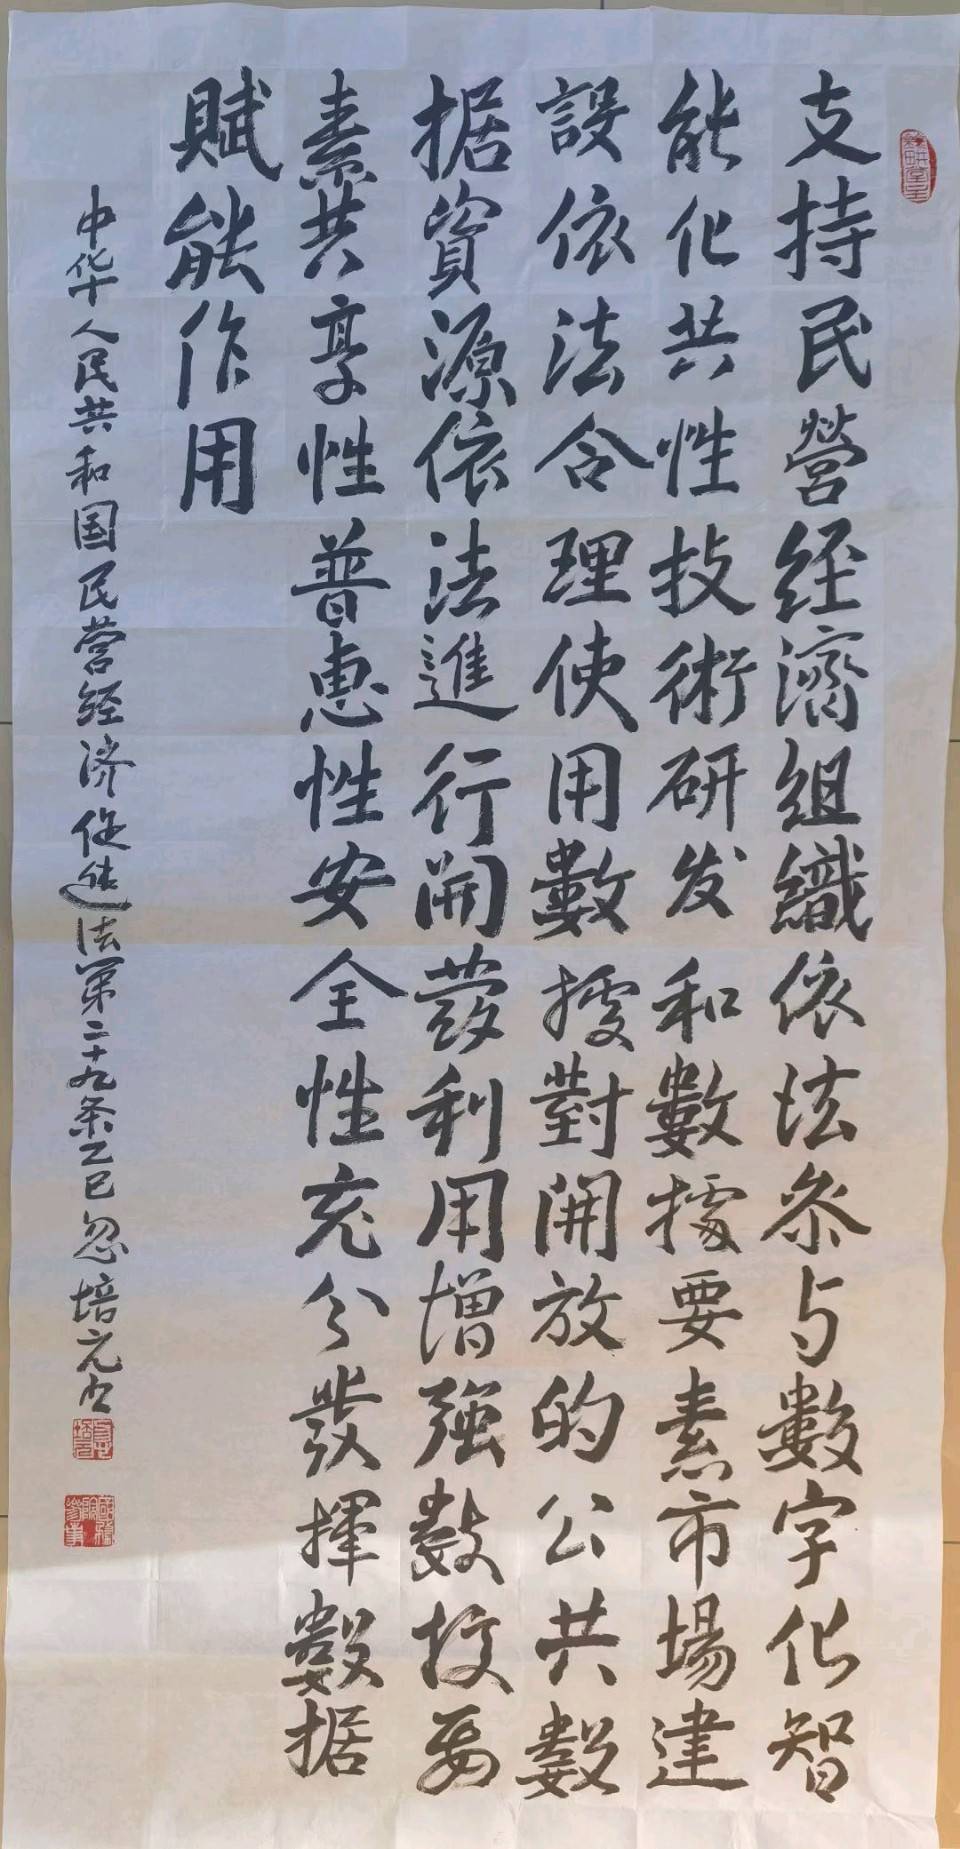 支持民營經濟組織依法参与數字化智
能化共性技術研发和數據要素市場建
設依法合理使用數據對開放的公共數
据資源依法進行開發利用增强數据要
素共享性普惠性安全性充分发揮數据
賦能作用
中华人民共和国民营经济促进法第二十九条乙巳忽培元书